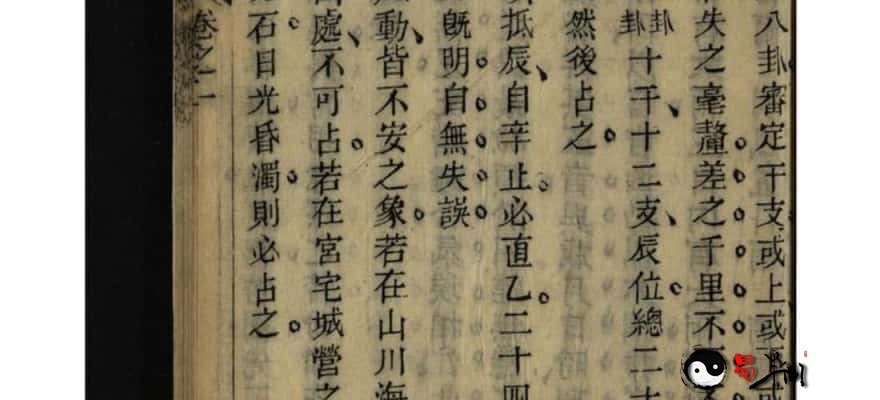 八卦審定干支或上或
失之毫釐差之千里不
卦卦十干十二支辰位總二十
然後占之
抵辰自辛止必直乙二十四
既明自無失誤
動皆不安之象若在山川海
處不可占若在宮宅城營之
石日光昏濁則必占之
卷之二
易